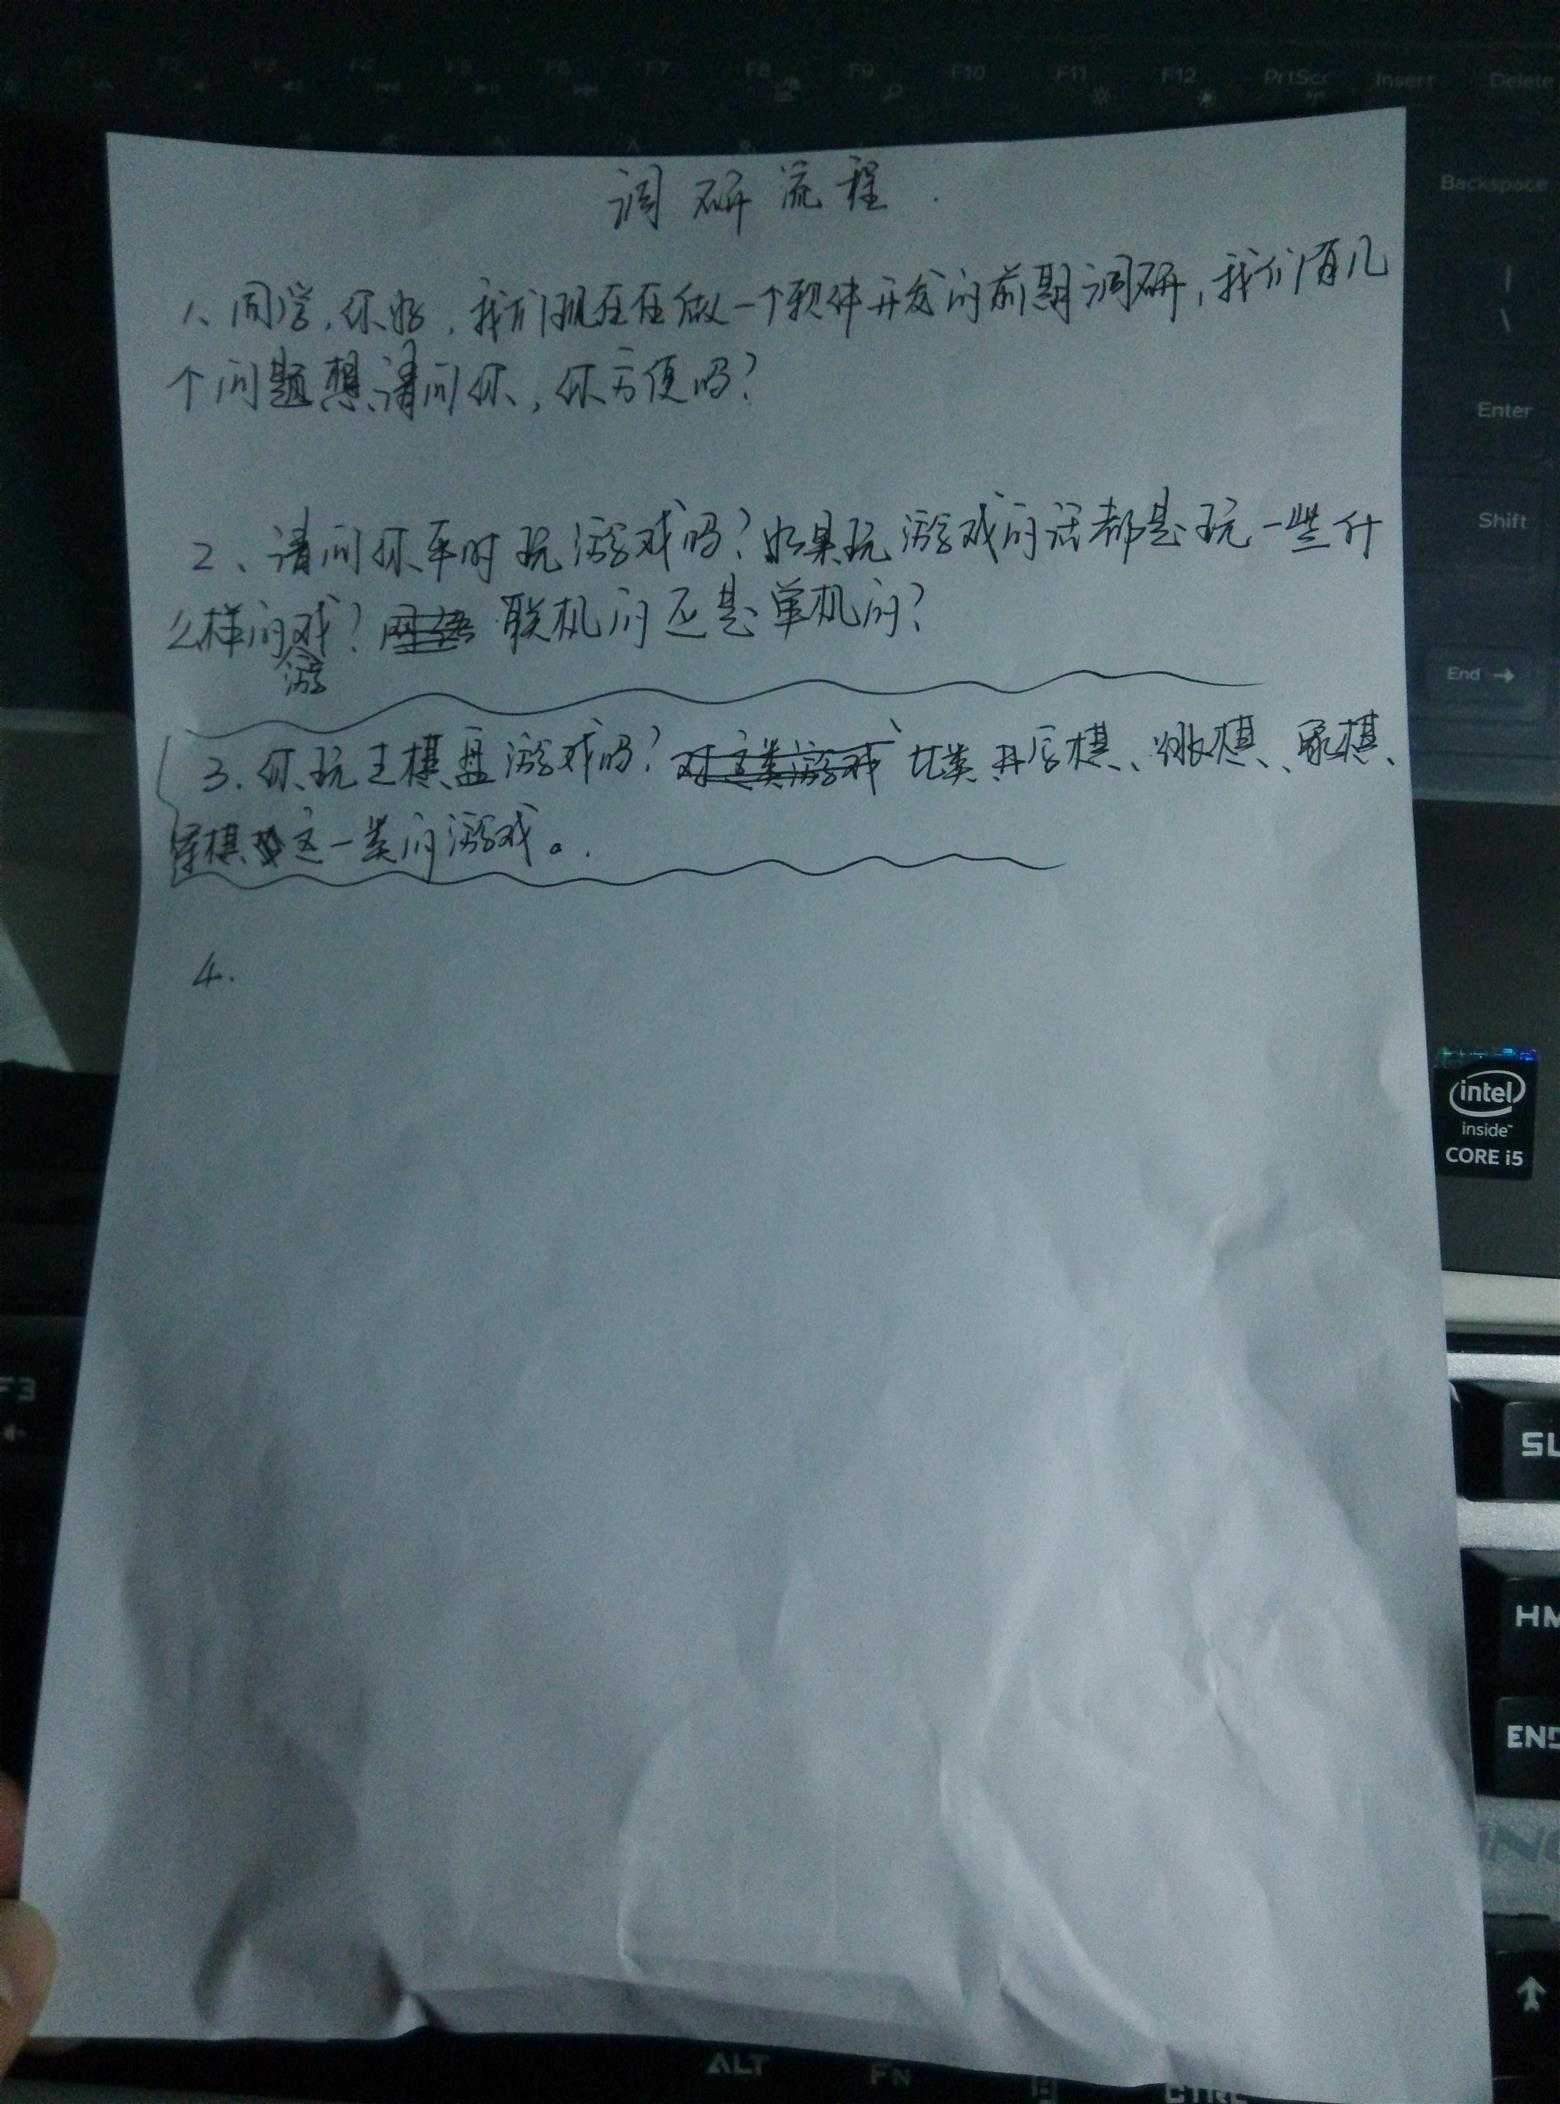 F3 F4 F5 F6 F7 F8 F9 F10 F11 F12 PrtScr Insert Delete
Backspace
调研流程.
1、同学,你好,我们现在在做一个软件开发的前期调研,我们有几
个问题想请问你,你方便吗?
Enter
2、请问你平时玩游戏吗?如果玩游戏的话都是玩一些什
么样的游戏? 联机的还是单机的?
Shift
End →
3.你玩过棋盘游戏吗?对这类游戏 比类 棋、跳棋、象棋、
军棋这一类的游戏。
4.
intel
inside™
CORE i5
F3
SL
HM
END
ALT FN CTRL